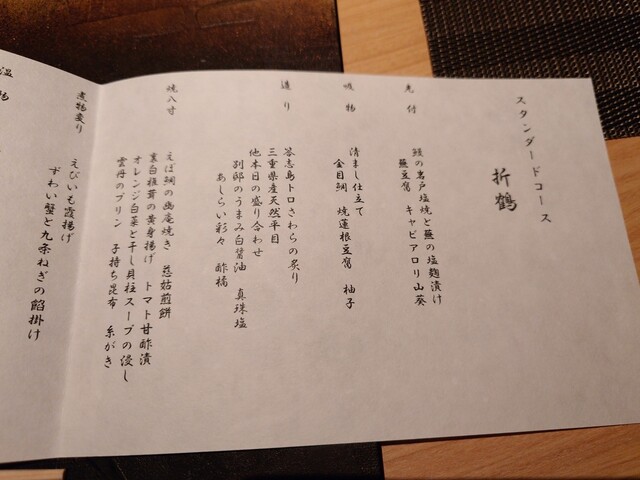 スタンダードコース
折鶴
先付
鰻の岩戸塩焼と蕪の塩麹漬け
蕪豆腐 キャビアロリ山葵
吸物
清まし仕立て
金目鯛 焼蓮根豆腐 柚子
造り
答志島トロさわらの炙り
三重県産天然平目
他本日の盛り合わせ
別邸のうまみ白醤油 真珠塩
あしらい彩々 酢橘
焼八寸
えぼ鯛の幽庵焼き 慈姑煎餅
裏白椎茸の黄身揚げ トマト甘酢漬
オレンジ白菜と干し貝柱スープの浸し
雲丹のプリン 子持ち昆布 糸がき
煮物変り
えびいも霞揚げ
ずわい蟹と九条ねぎの餡掛け
温物